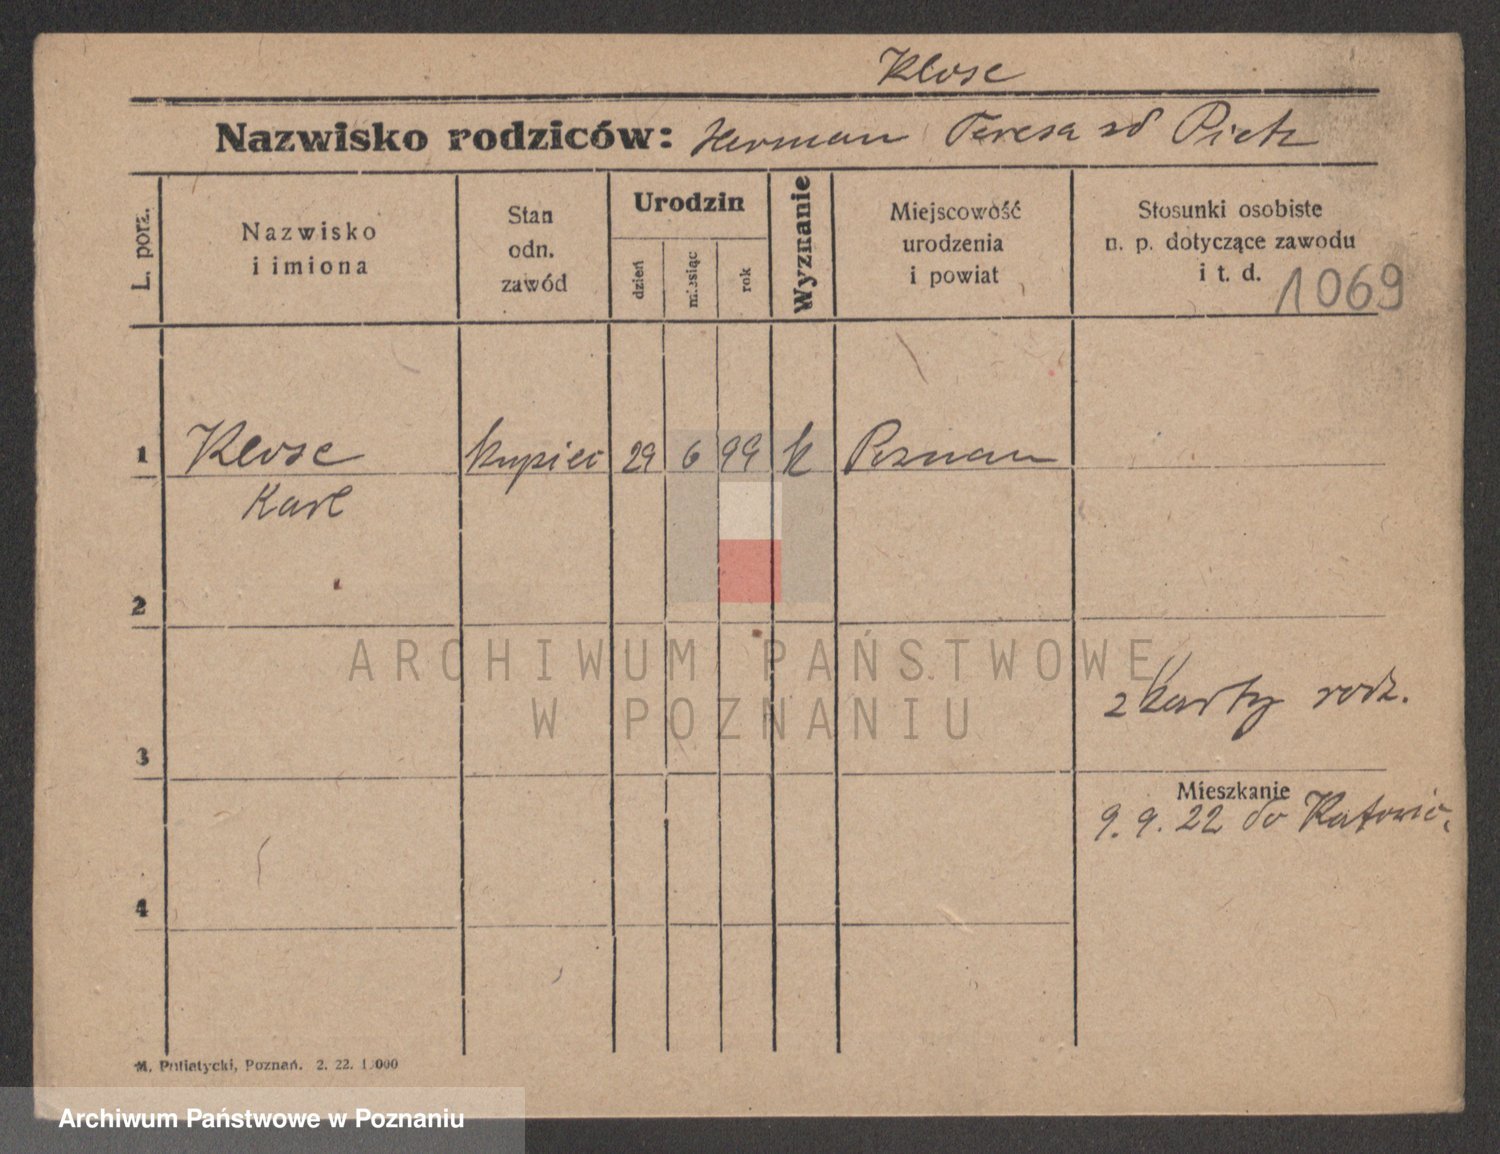 Klose
Nazwisko rodziców: Herman Teresa zd Pietz
L. porz.
Nazwisko
i imiona
Stan
odn.
zawód
Urodzin
dzień
miesiąc
rok
Wyznanie
Miejscowość
urodzenia
i powiat
Stosunki osobiste
n. p. dotyczące zawodu
i t. d.
1069
1 Klose kupiec 29 6 99 k Poznan
Karl
2
ARCHIWUM PAŃSTWOWE
W POZNANIU
z karty rodz.
3
Mieszkanie
9. 9. 22 do Katowic.
4
M. Putiatycki, Poznań. 2. 22.
Archiwum Państwowe w Poznaniu